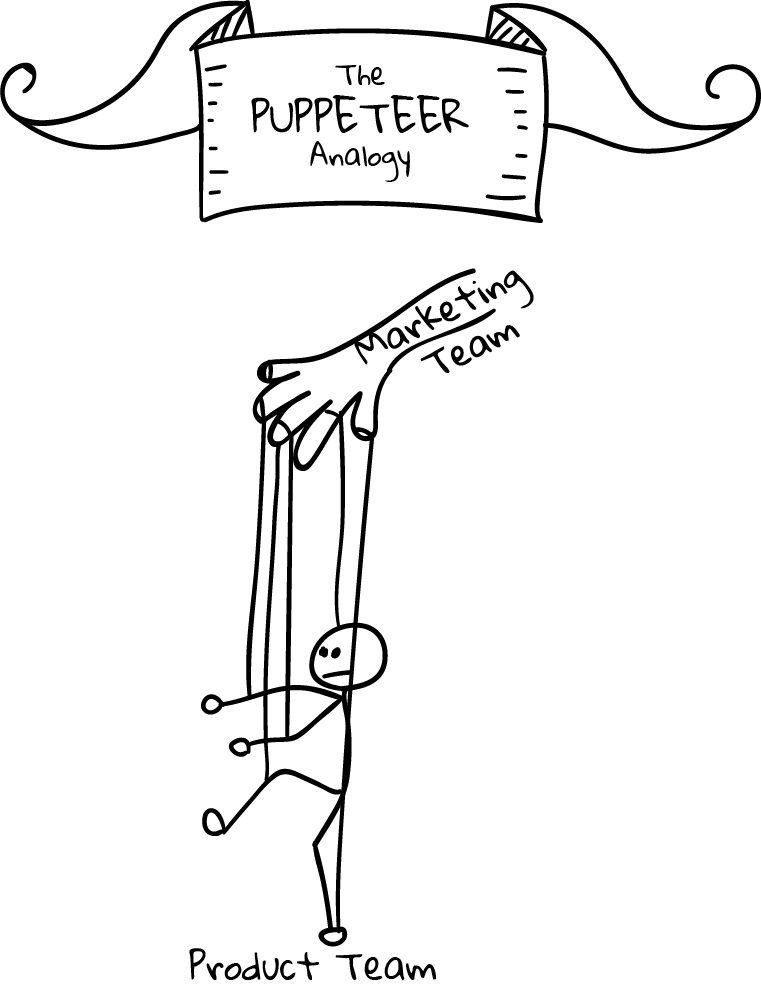 The
PUPPETEER
Analogy
Marketing
Team
Product Team